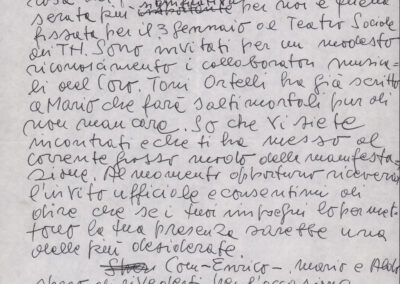 serata più significativa per noi è quella
fissata per il 3 gennaio al Teatro Sociale
di TN. Sono invitati per un modesto
riconoscimento i collaboratori musica-
li del Coro. Toni Ortelli ha già scritto
a Mario che farà salti mortali pur di
non mancare. So che vi siete
incontrati e che ti ha messo al
corrente grosso modo della manifesta-
zione. Al momento opportuno riceverai
l'invito ufficiale e consentimi di
dire che se i tuoi impegni lo permet-
tono la tua presenza sarebbe una
delle più desiderate.
Con - Enrico -, Mario e Aldo